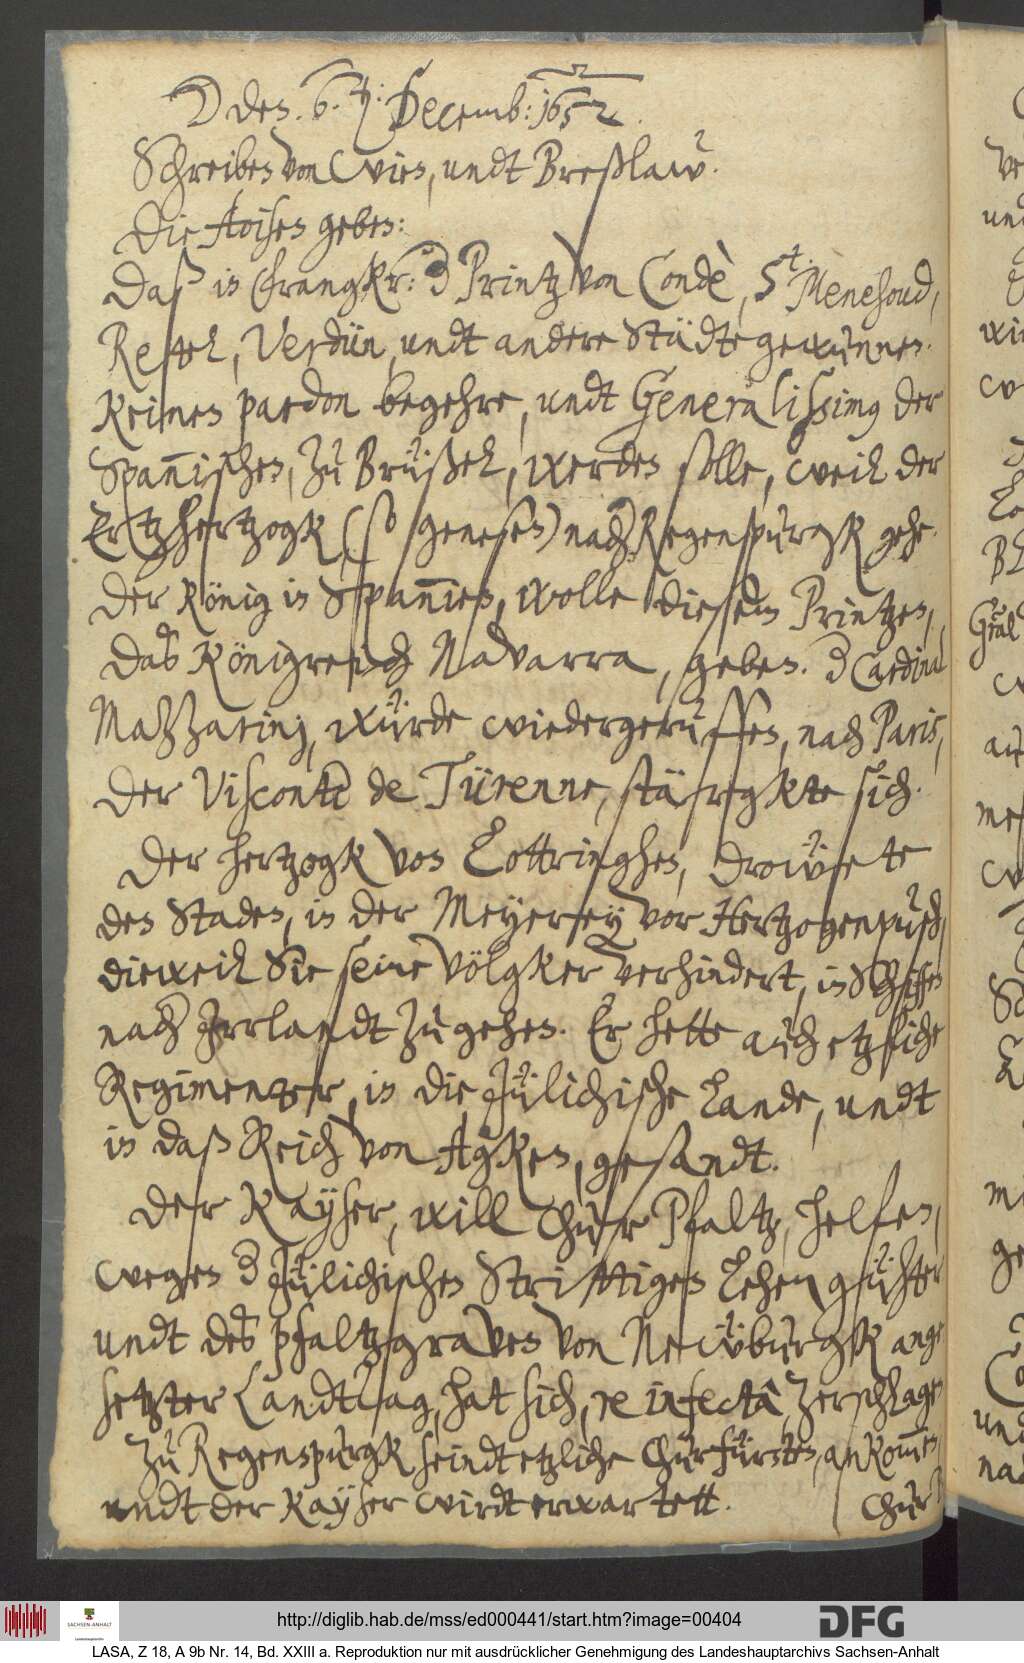 ☽ den. 6.ten: Decemb: 1652.
Schreiben von Wien, undt Breßlaw.
Die Avisen geben:
Daß in Franckr: d Printz von Condè, St. Menehoud,
Rettel, Verdün, undt andere Städte gewunnen.
Keinen pardon begehre, undt Generalissimus der
Spannischen, zu Brüßel, werden solle, weil der
Ertzhertzogk (so genesen) nach Regenspurgk gehe.
Der König in Spannien, wolle diesem Printzen,
das Königreich Navarra, geben. d Cardinal
Mazzarinj, würde wiedergeruffen, nach Paris,
Der Visconte de Türenne, stärgkte sich.
Der Hertzogk von Lottringhen, drowete
den Staden, in der Meyerey vor Hertzogenpusch,
dieweil Sie seine Völgker verhindert, in Schiffen
nach Irrlandt zu gehen. Er hette auch etzliche
Regimenter, in die Jülichische Lande, undt
in daß Reich von Agken, gesandt.
Der Kayser, will Chur Pfaltz, helfen,
wegen d Jülichischen Strittigen Lehen güter
undt deß Pfaltzgraven von Newburgk ange
setzter Landttag, hat sich, re infectâ, zerschlagen
Zu Regenspurgk seindt etzliche Churfürsten, ankommen,
undt der Kayser wirdt erwartett.
Chur
http://diglib.hab.de/mss/ed000441/start.htm?image=00404
SACHSEN-ANHALT
DFG
LASA, Z 18, A 9b Nr. 14, Bd. XXIII a. Reproduktion nur mit ausdrücklicher Genehmigung des Landeshauptarchivs Sachsen-Anhalt